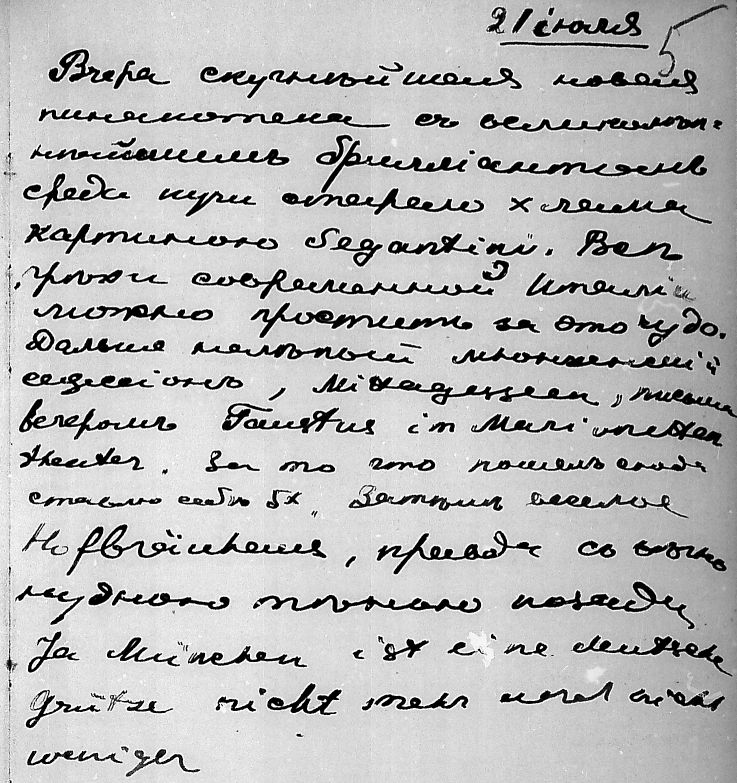 21 іюля 5
Вчера скучнѣйшая новая
пинакотека съ великолѣп-
нѣйшимъ брилліантомъ
среди кучи стараго хлама
картиною Segantini. Всѣ
грѣхи современной Италіи
можно простить за это чудо.
Дальше нелѣпый мюнхенскій
сецессіонъ, Mittagessen, письма
вечеромъ Faustus im Marionetten
theater. За то что пошелъ сюда
ставлю себѣ 5+. Затѣмъ веселое
Hofbräuhaus, правда со
нуднаго позади,
Ja München ist eine deutsche
Grütze nicht mehr und nicht
weniger